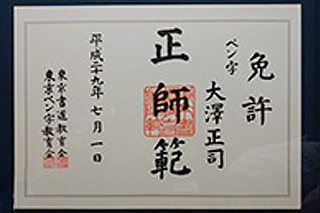 免許
ペン字
大澤正司
正師範
平成二十九年七月一日
東京書道教育会
東京ペン字教育会